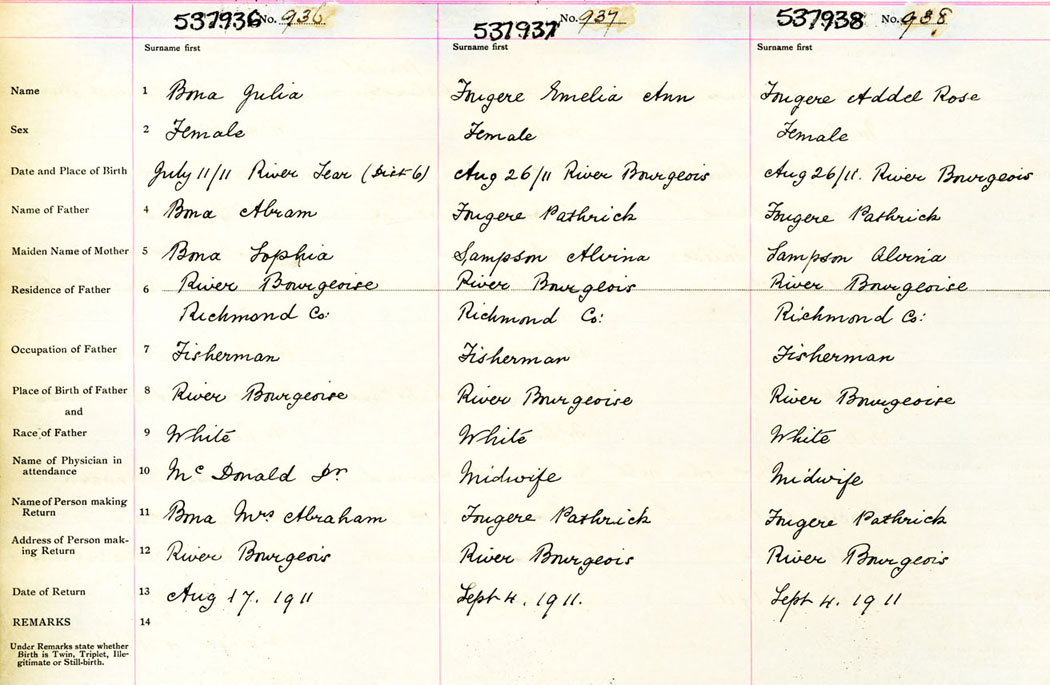 537936 No. 936 537937 No. 937 537938 No. 938
Surname first Surname first Surname first
Name 1 Bona Julia Fougere Emelia Ann Fougere Addel Rose
Sex 2 Female Female Female
Date and Place of Birth July 11/11 River Tear (Dist 6) Aug 26/11 River Bourgeois Aug 26/11. River Bourgeois
Name of Father 4 Bona Abram Fougere Pathrick Fougere Pathrick
Maiden Name of Mother 5 Bona Sophia Sampson Alvina Sampson Alvina
Residence of Father 6 River Bourgeoise River Bourgeois River Bourgeoise
Richmond Co: Richmond Co: Richmond Co:
Occupation of Father 7 Fisherman Fisherman Fisherman
Place of Birth of Father 8 River Bourgeoise River Bourgeoise River Bourgeoise
and
Race of Father 9 White White White
Name of Physician in
attendance 10 Mc Donald Dr Midwife Midwife
Name of Person making
Return 11 Bona Mrs Abraham Fougere Pathrick Fougere Pathrick
Address of Person mak-
ing Return 12 River Bourgeois River Bourgeois River Bourgeois
Date of Return 13 Aug 17. 1911 Sept 4. 1911. Sept 4. 1911
REMARKS 14
Under Remarks state whether
Birth is Twin, Triplet, Ille-
gitimate or Still-birth.